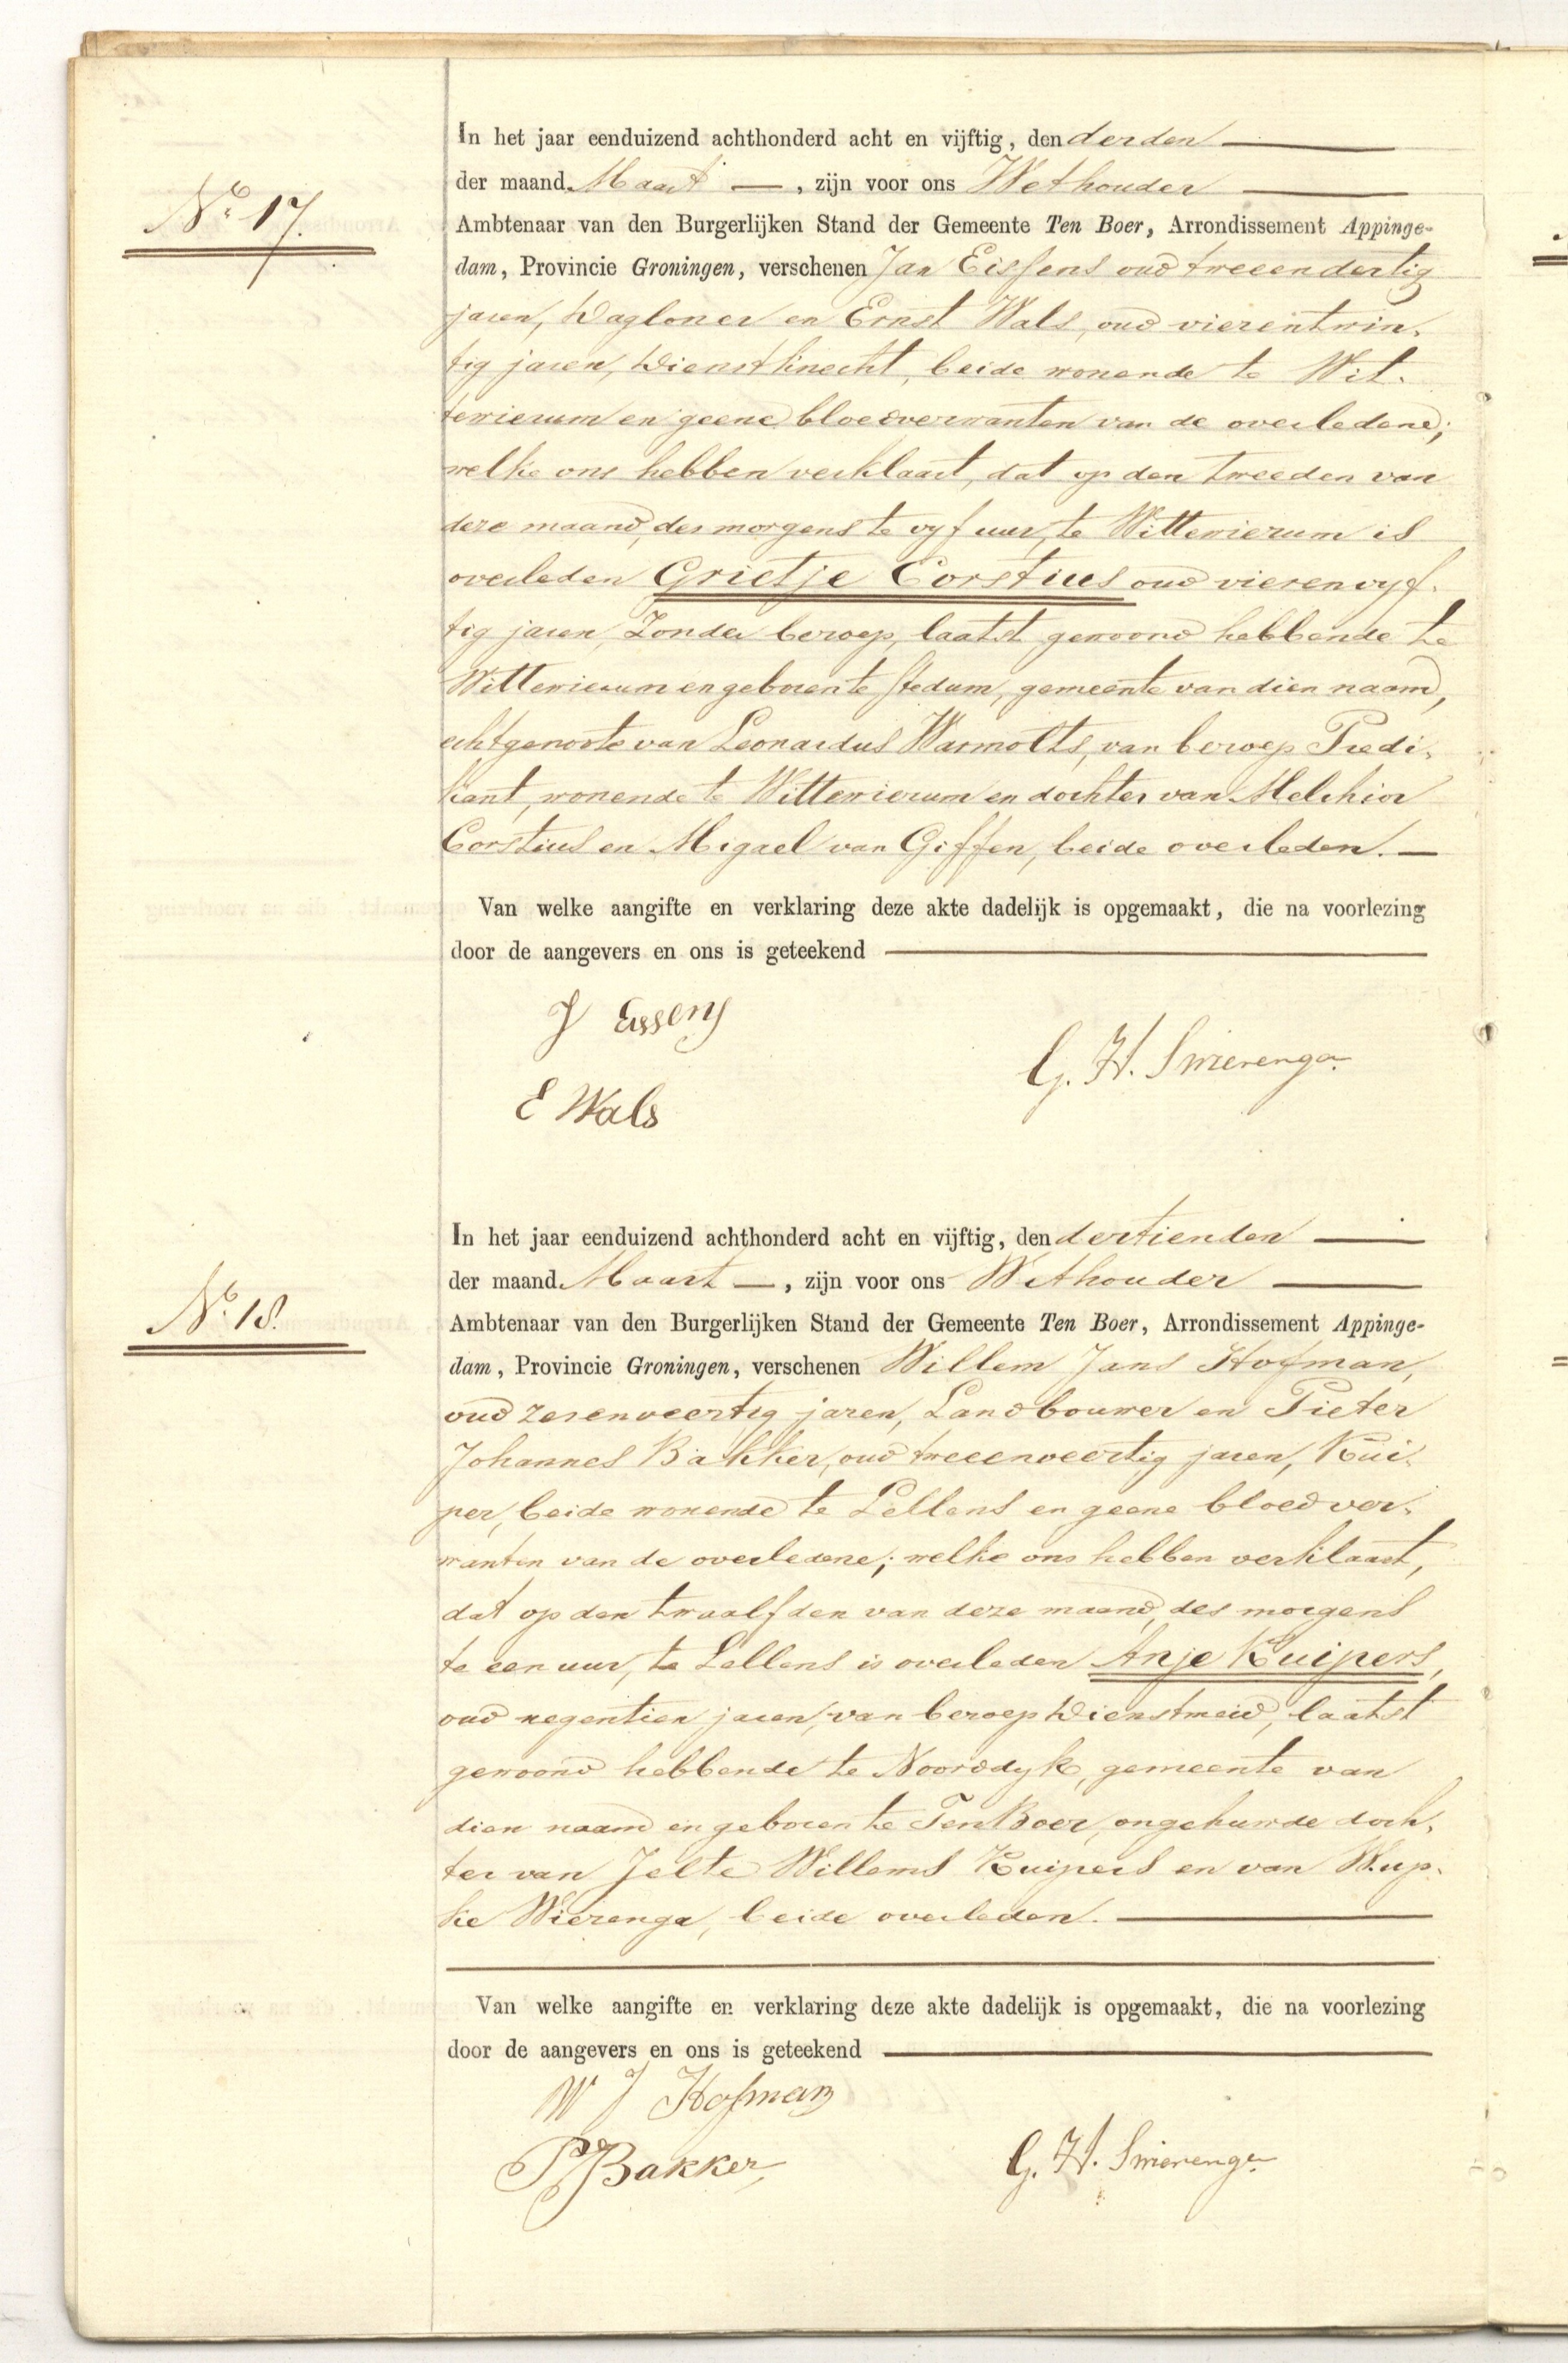 In het jaar eenduizend achthonderd acht en vijftig, den derden
No. 17.
der maand Maart —, zijn voor ons Wethouder
Ambtenaar van den Burgerlijken Stand der Gemeente Ten Boer, Arrondissement Appinge-
dam, Provincie Groningen, verschenen Jan Eissens oud tweeendertig
jaren, Dagloner en Ernst Wals, oud vierentwin-
tig jaren, Dienstknecht, beide wonende te Wit-
tewierum en geene bloedverwanten van de overledene;
welke ons hebben verklaart, dat op den tweeden van
deze maand, des morgens te vyf uur, te Wittewierum is
overleden Grietje Corstius oud vierenvyf-
tig jaren, Zonder beroep, laatst gewoond hebbende te
Wittewierum en geboren te Stedum, gemeente van dien naam,
echtgenoote van Leonardus Warmolts, van beroep Predi-
kant, wonende te Wittewierum en dochter van Melchior
Corstius en Migael van Giffen, beide overleden. —
Van welke aangifte en verklaring deze akte dadelijk is opgemaakt, die na voorlezing
door de aangevers en ons is geteekend
J Eissens
G. H. Swierenga
E Wals
In het jaar eenduizend achthonderd acht en vijftig, den dertienden
der maand Maart —, zijn voor ons Wethouder
No. 18.
Ambtenaar van den Burgerlijken Stand der Gemeente Ten Boer, Arrondissement Appinge-
dam, Provincie Groningen, verschenen Willem Jans Hofman,
oud zesenveertig jaren, Landbouwer en Pieter
Johannes Bakker, oud tweeenveertig jaren, Kui-
per, beide wonende te Lellens en geene bloedver-
wanten van de overledene; welke ons hebben verklaart,
dat op den twaalfden van deze maand, des morgens
te een uur, te Lellens is overleden Anje Kuipers,
oud negentien jaren, van beroep Dienstmeid, laatst
gewoond hebbende te Noorddyk, gemeente van
dien naam en geboren te Ten Boer, ongehuwde doch-
ter van Jelte Willems Kuipers en van Wup-
ke Wierenga, beide overleden.
Van welke aangifte en verklaring deze akte dadelijk is opgemaakt, die na voorlezing
door de aangevers en ons is geteekend
W J Hofman
P J Bakker
G. H. Swierenga